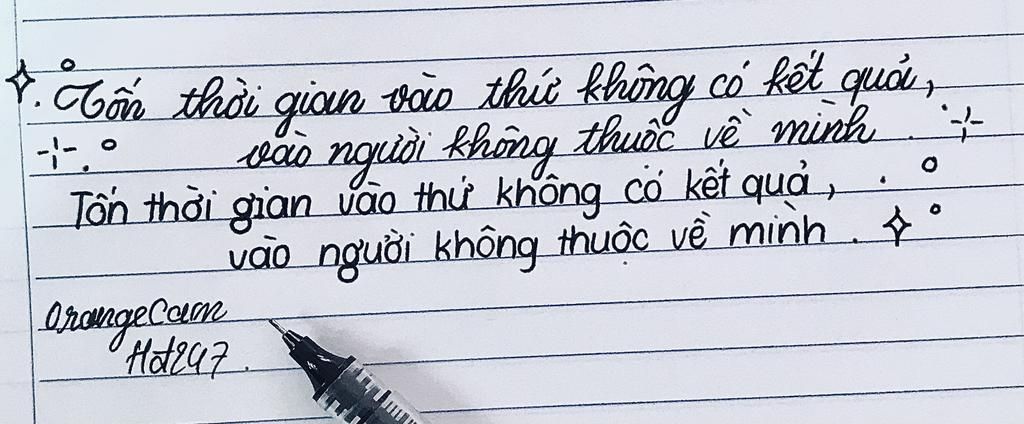 Tốn thời gian vào thứ không có kết quả,
vào người không thuộc về mình.
Tốn thời gian vào thứ không có kết quả,
vào người không thuộc về mình.
OrangeCam
Hot247.